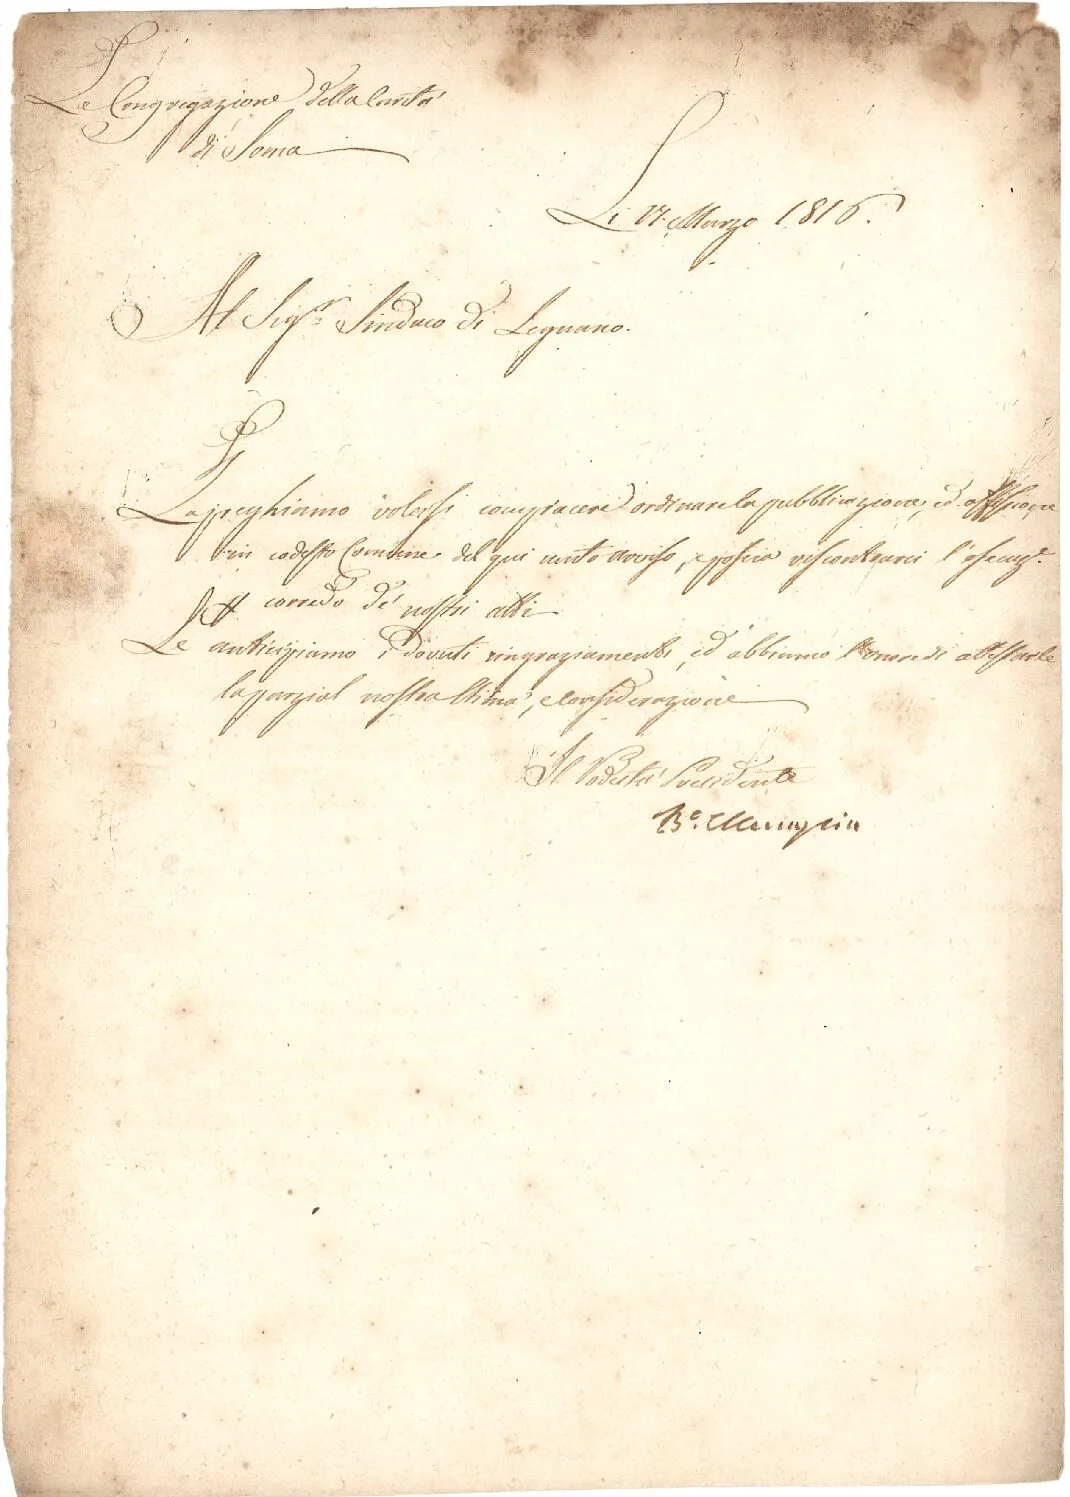 La Congregazione della Carità
di Soma
Li 17 Marzo 1816.
Al Sigr. Sindaco di Legnano.
La preghiamo volersi compiacere ordinare la pubblicazione, ed affissione
in codesto Comune del qui unito avviso, e poscia riscontrarci l'
corredo de' nostri atti
Le anticipiamo i dovuti ringraziamenti, ed abbiamo l'onore di attestarle
la parzial nostra stima, e considerazione
Il Podestà Presidente